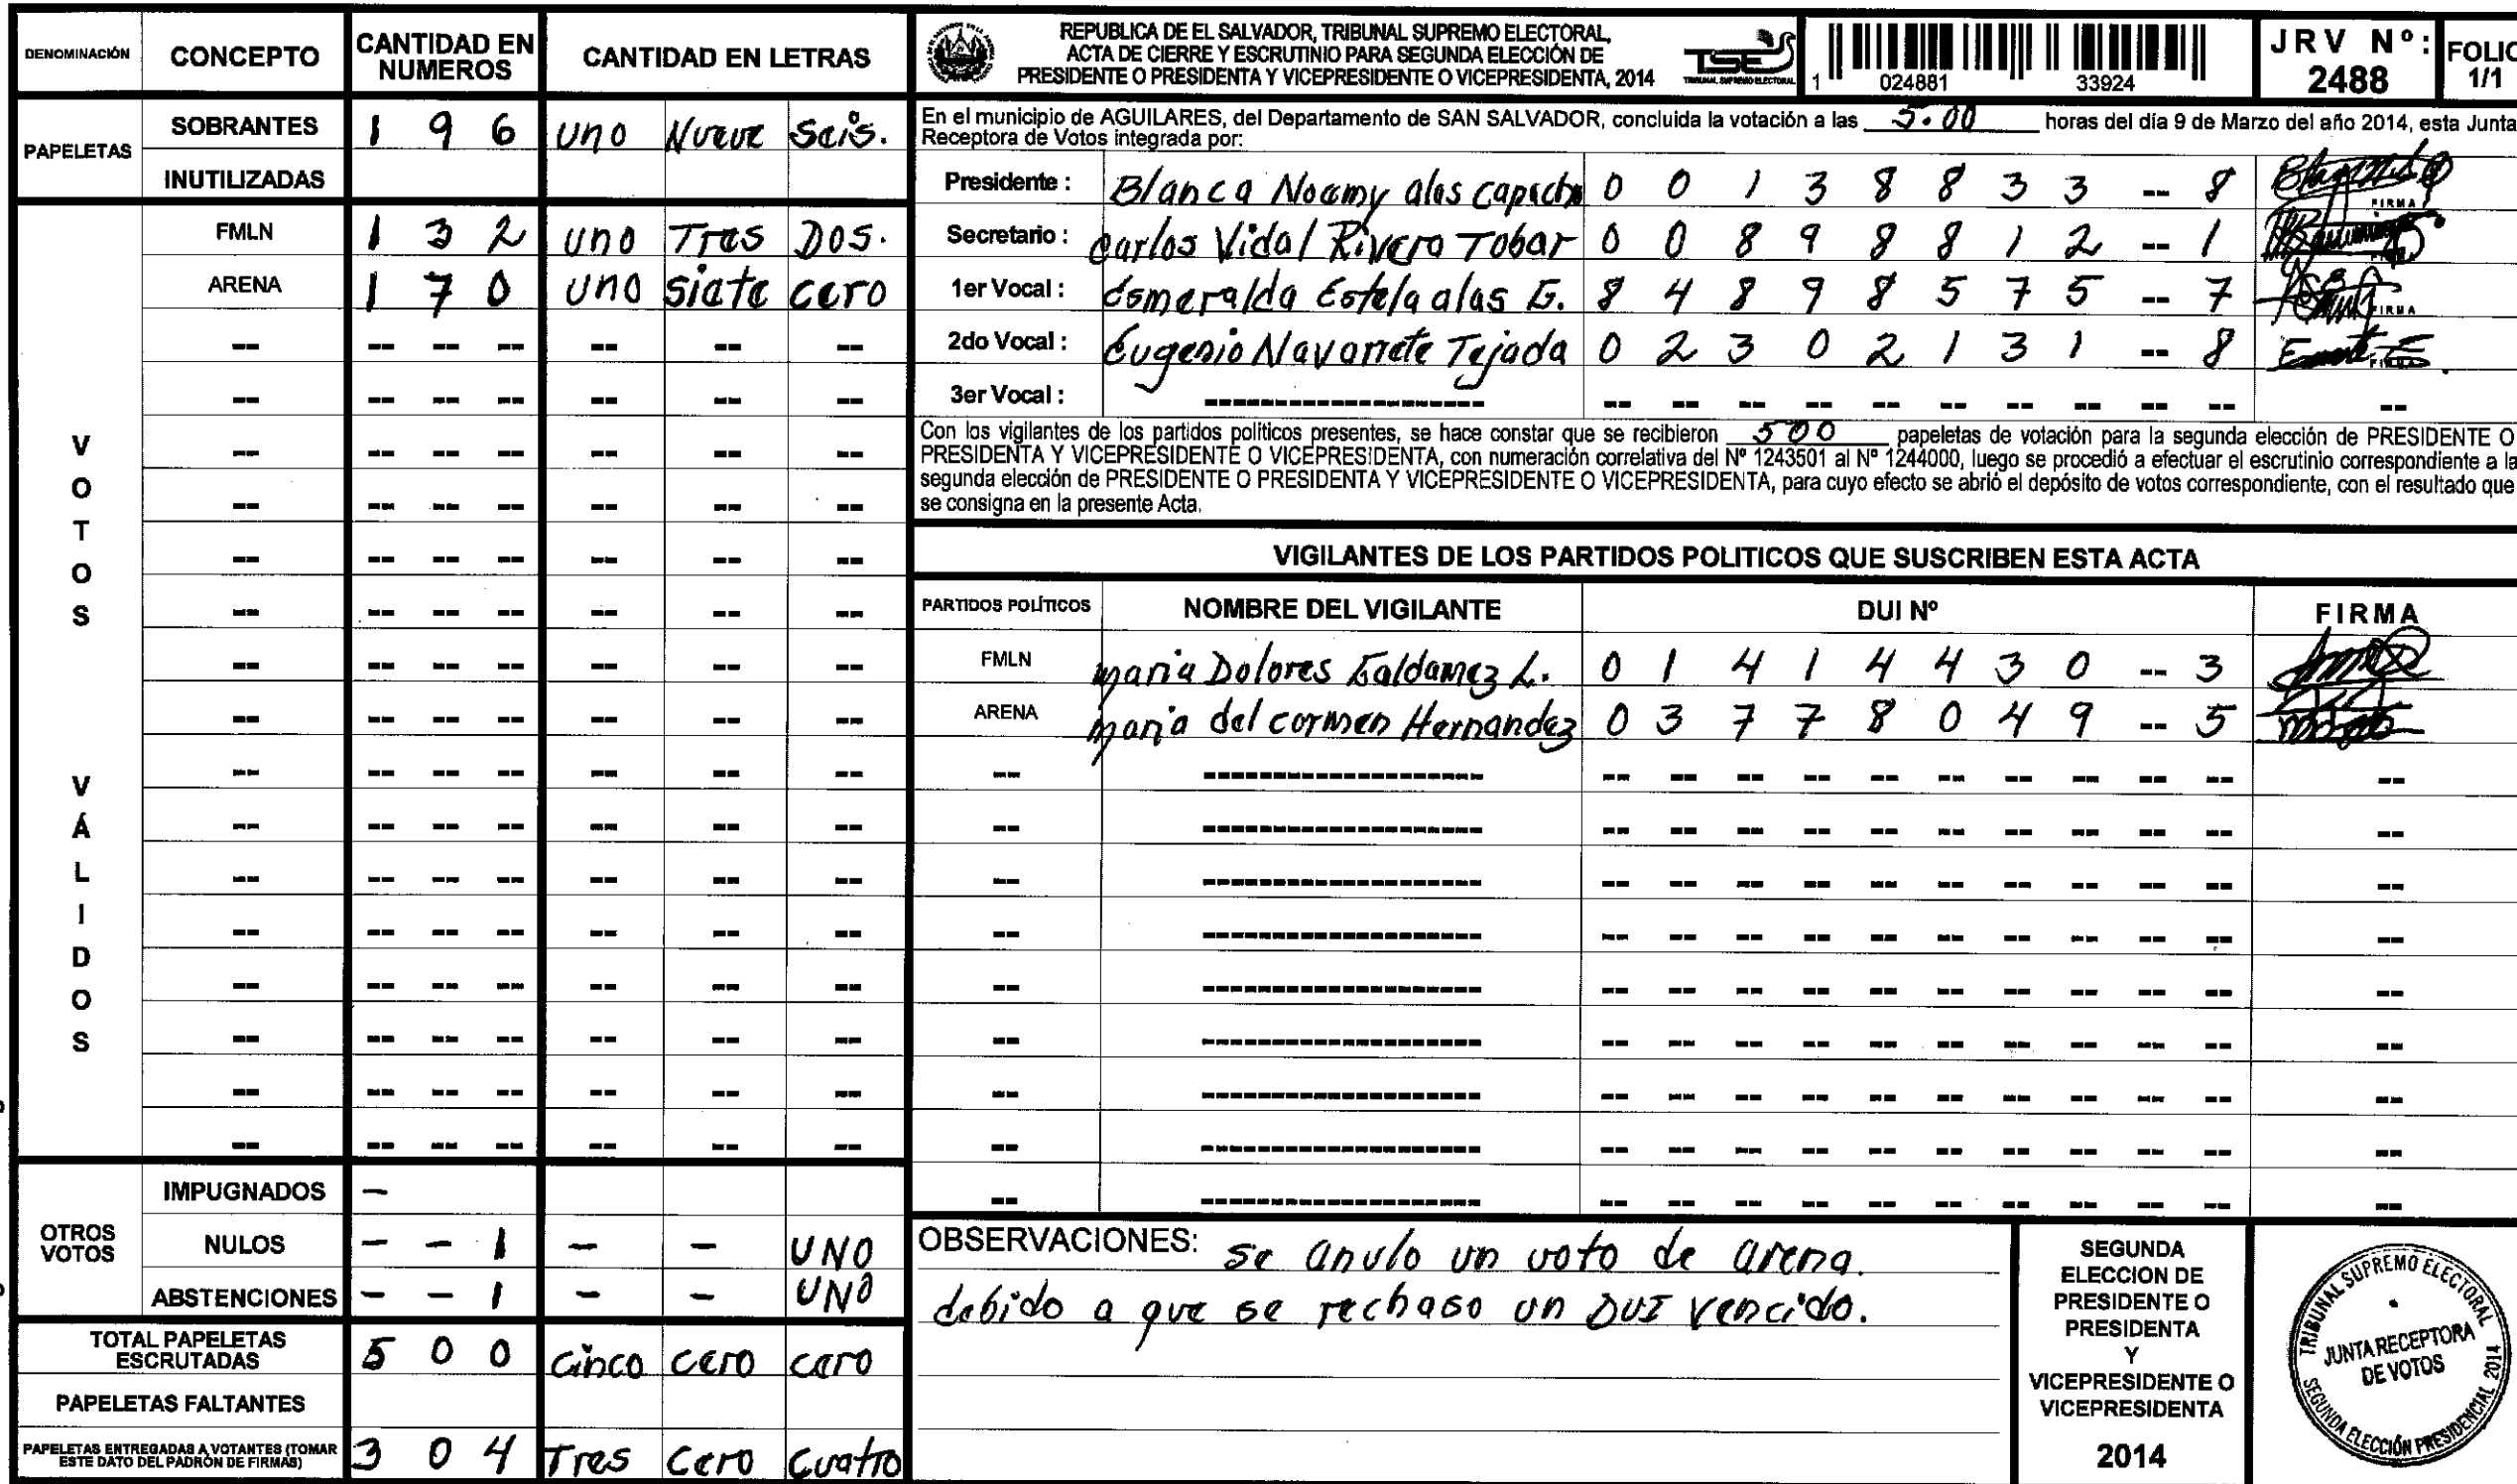 DENOMINACIÓN CONCEPTO CANTIDAD EN NUMEROS CANTIDAD EN LETRAS
PAPELETAS
SOBRANTES 1 9 6 uno Nueve Seis.
INUTILIZADAS
VOTOS VÁLIDOS
FMLN 1 3 2 uno Tres Dos.
ARENA 1 7 0 uno siete cero
OTROS VOTOS
IMPUGNADOS –
NULOS – – 1 – – UNO
ABSTENCIONES – – 1 – – UNO
TOTAL PAPELETAS ESCRUTADAS 5 0 0 cinco cero cero
PAPELETAS FALTANTES
PAPELETAS ENTREGADAS A VOTANTES (TOMAR ESTE DATO DEL PADRÓN DE FIRMAS) 3 0 4 Tres Cero Cuatro
REPUBLICA DE EL SALVADOR, TRIBUNAL SUPREMO ELECTORAL,
ACTA DE CIERRE Y ESCRUTINIO PARA SEGUNDA ELECCIÓN DE
PRESIDENTE O PRESIDENTA Y VICEPRESIDENTE O VICEPRESIDENTA, 2014
TSE
TRIBUNAL SUPREMO ELECTORAL
1 024881 33924
JRV Nº: 2488
FOLIO 1/1
En el municipio de AGUILARES, del Departamento de SAN SALVADOR, concluida la votación a las 5:00 horas del día 9 de Marzo del año 2014, esta Junta
Receptora de Votos integrada por:
Presidente : Blanca Noemy alas 0 0 1 3 8 8 3 3 -- 8 FIRMA
Secretario : Carlos Vidal Rivera Tobar 0 0 8 9 8 8 1 2 -- 1
1er Vocal : Esmeralda Estela alas G. 8 4 8 9 8 5 7 5 -- 7 FIRMA
2do Vocal : Eugenio Navarrete Tejada 0 2 3 0 2 1 3 1 -- 8 FIRMA
3er Vocal :
Con los vigilantes de los partidos políticos presentes, se hace constar que se recibieron 500 papeletas de votación para la segunda elección de PRESIDENTE O
PRESIDENTA Y VICEPRESIDENTE O VICEPRESIDENTA, con numeración correlativa del Nº 1243501 al Nº 1244000, luego se procedió a efectuar el escrutinio correspondiente a la
segunda elección de PRESIDENTE O PRESIDENTA Y VICEPRESIDENTE O VICEPRESIDENTA, para cuyo efecto se abrió el depósito de votos correspondiente, con el resultado que
se consigna en la presente Acta.
VIGILANTES DE LOS PARTIDOS POLITICOS QUE SUSCRIBEN ESTA ACTA
PARTIDOS POLÍTICOS NOMBRE DEL VIGILANTE DUI Nº FIRMA
FMLN maria Dolores Galdamez L. 0 1 4 1 4 4 3 0 -- 3
ARENA maria del carmen Hernandez 0 3 7 7 8 0 4 9 -- 5
OBSERVACIONES: se anulo un voto de arena.
debido a que se rechaso un DUI vencido.
SEGUNDA
ELECCION DE
PRESIDENTE O
PRESIDENTA
Y
VICEPRESIDENTE O
VICEPRESIDENTA
2014
TRIBUNAL SUPREMO ELECTORAL
JUNTA RECEPTORA
DE VOTOS
SEGUNDA ELECCIÓN PRESIDENCIAL 2014